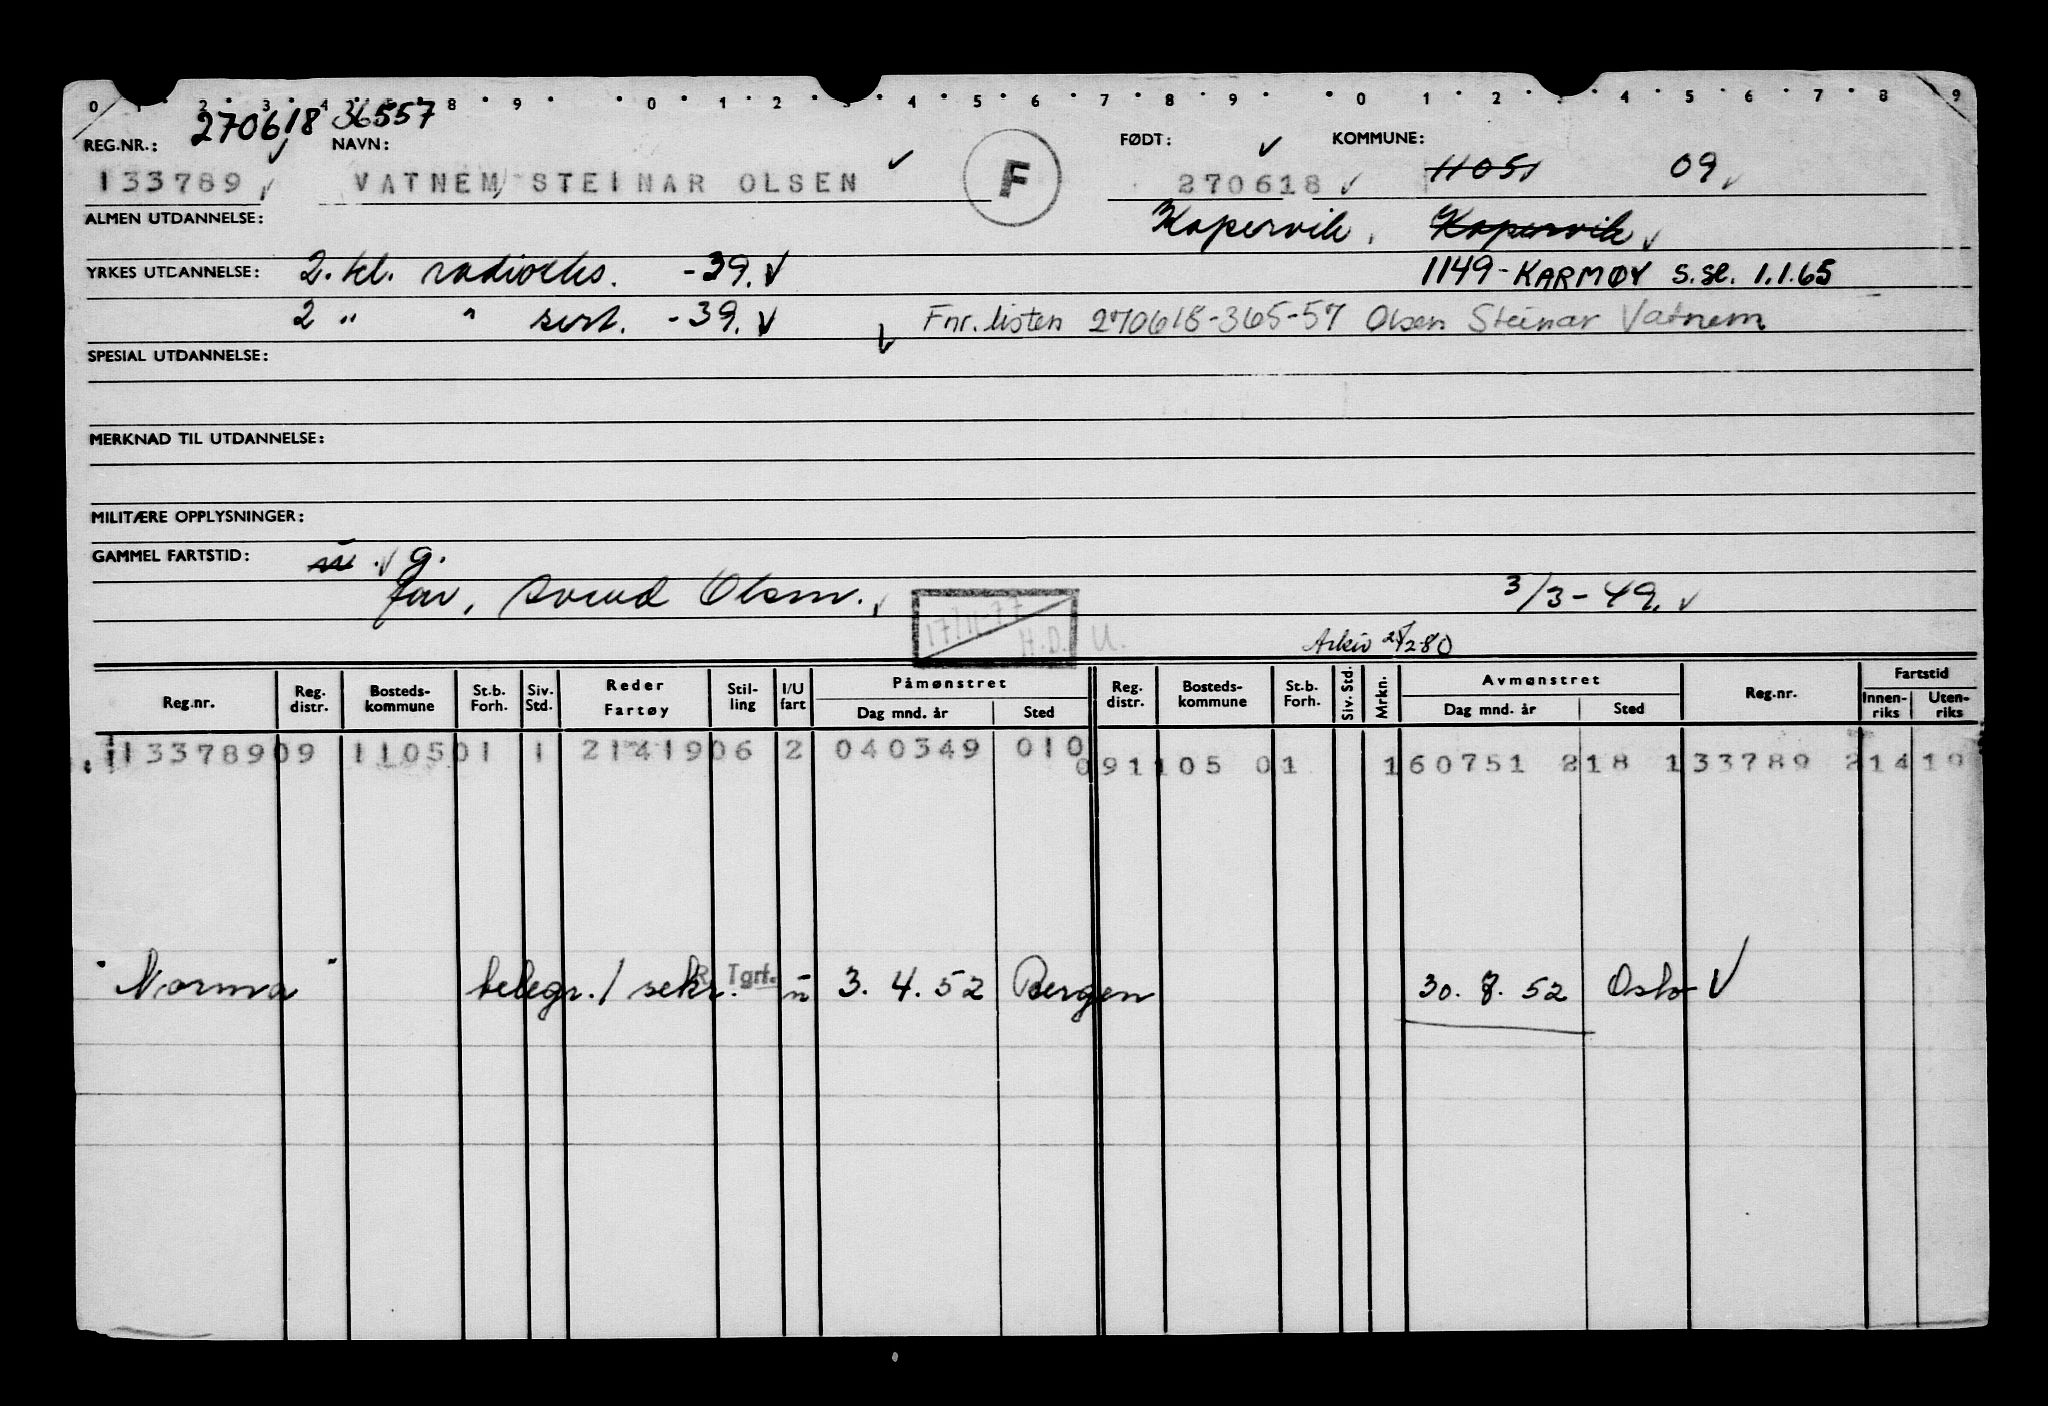 0 1 2 3 4 8 9 0 1 2 3 4 5 6 7 8 9 0 1 2 3 4 5 6 7 8 9
270618 36557
REG.NR.: NAVN: FØDT: KOMMUNE:
133789 VATNEM, STEINAR OLSEN F 270618 11051 09
ALMEN UTDANNELSE: Kopervik Kopervik
YRKES UTDANNELSE: 2. kl. -39. 1149-KARMØY S.Sl. 1.1.65
2 " " sert. -39. Fnr. listen 270618-365-57 Olsen Steinar Vatnem
SPESIAL UTDANNELSE:
MERKNAD TIL UTDANNELSE:
MILITÆRE OPPLYSNINGER:
GAMMEL FARTSTID: g.
far, Svend Olsen. 3/3-49.
17/11-77 H.D. U. Arkiv 2/280
Reg.nr. Reg. distr. Bosteds-kommune St.b. Forh. Siv. Std. Reder Fartøy Stil-ling I/U fart Påmønstret Dag mnd. år Sted Reg. distr. Bosteds-kommune St.b. Forh. Siv. Std. Mrkn. Avmønstret Dag mnd. år Sted Reg.nr. Fartstid Innen-riks Uten-riks
133789 09 1105 01 1 21419 06 2 040349 010 09 1105 01 160751 218 133789 21419
"Norma" telegr./sekr. R. Tgrf. u 3. 4. 52 Bergen 30. 8. 52 Oslo